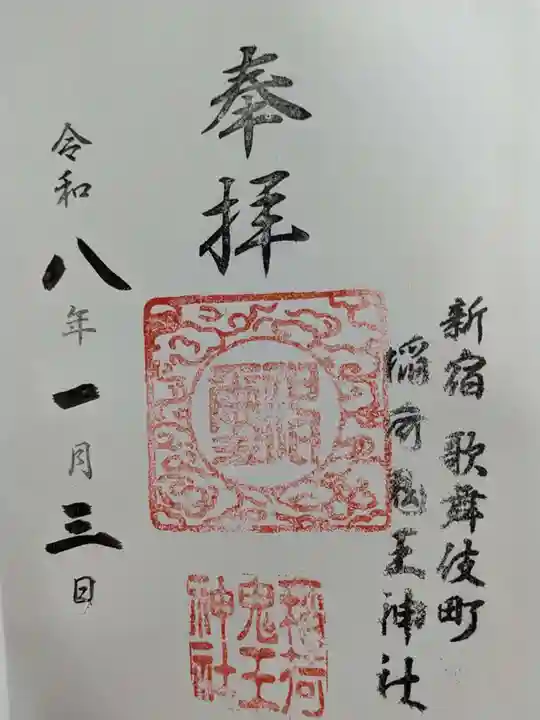 新宿 歌舞伎町
稲荷鬼王神社
奉拝
令和八年一月三日
稲荷
鬼王
神社